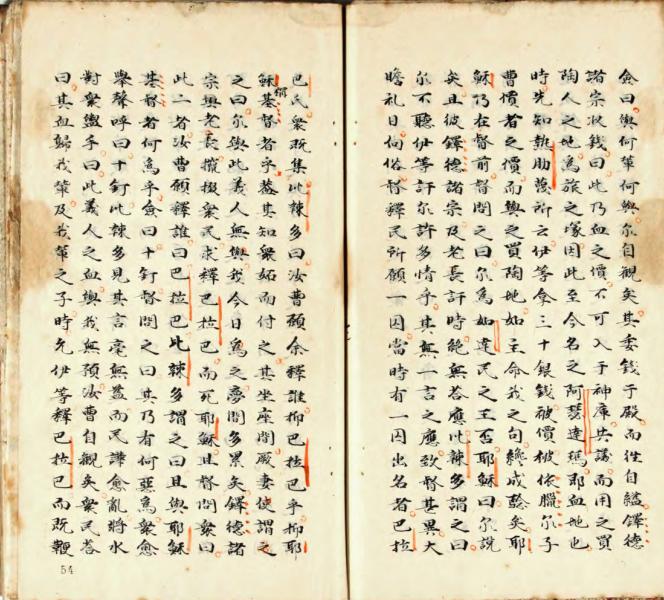 僉曰與何輩何與尔自觀矣其委錢于殿而往自縊鐸德
諸宗收錢曰此乃血之價不可入于神庫共議而用之買
陶人之地為旅之塚因此至今名之阿瑟達瑪耶血地也
時先知熱肋蔑所云伊等拿三十銀錢被價被依臘尔子
曹價者之價而與之買陶地如主命我之句纔成驗矣耶
穌乃在督前督問之曰尔為如達民之王否耶穌曰尔說
矣且彼鐸德諸宗及老長訐時絕無答應比辣多謂之曰
尔不聽伊等訐尔許多情乎其無一言之應致督甚異大
瞻礼日向俗督釋民所願一囚當時有一囚出名者巴拉
巴氏衆既集比辣多曰汝曹願余釋誰抑巴拉巴乎抑耶
穌稱基督者乎蓋其知衆妬而付之其坐座間厥妻使謂之
之曰尔與此義人無與我今日為之夢間多累矣鐸德諸
宗與老長攛掇衆民求釋巴拉巴而死耶穌且督問衆曰
此二者汝曹願釋誰曰巴拉巴比辣多謂之曰且與耶穌
基督者何為乎僉曰十釘督問之曰其乃有何惡焉衆愈
舉聲呼曰十釘比辣多見其言毫無益而民譁愈亂將水
對衆盥手曰此義人之血與我無預汝曹自觀矣衆民答
曰其血歸我輩及我輩之子時伊等釋巴拉巴而既鞭
54